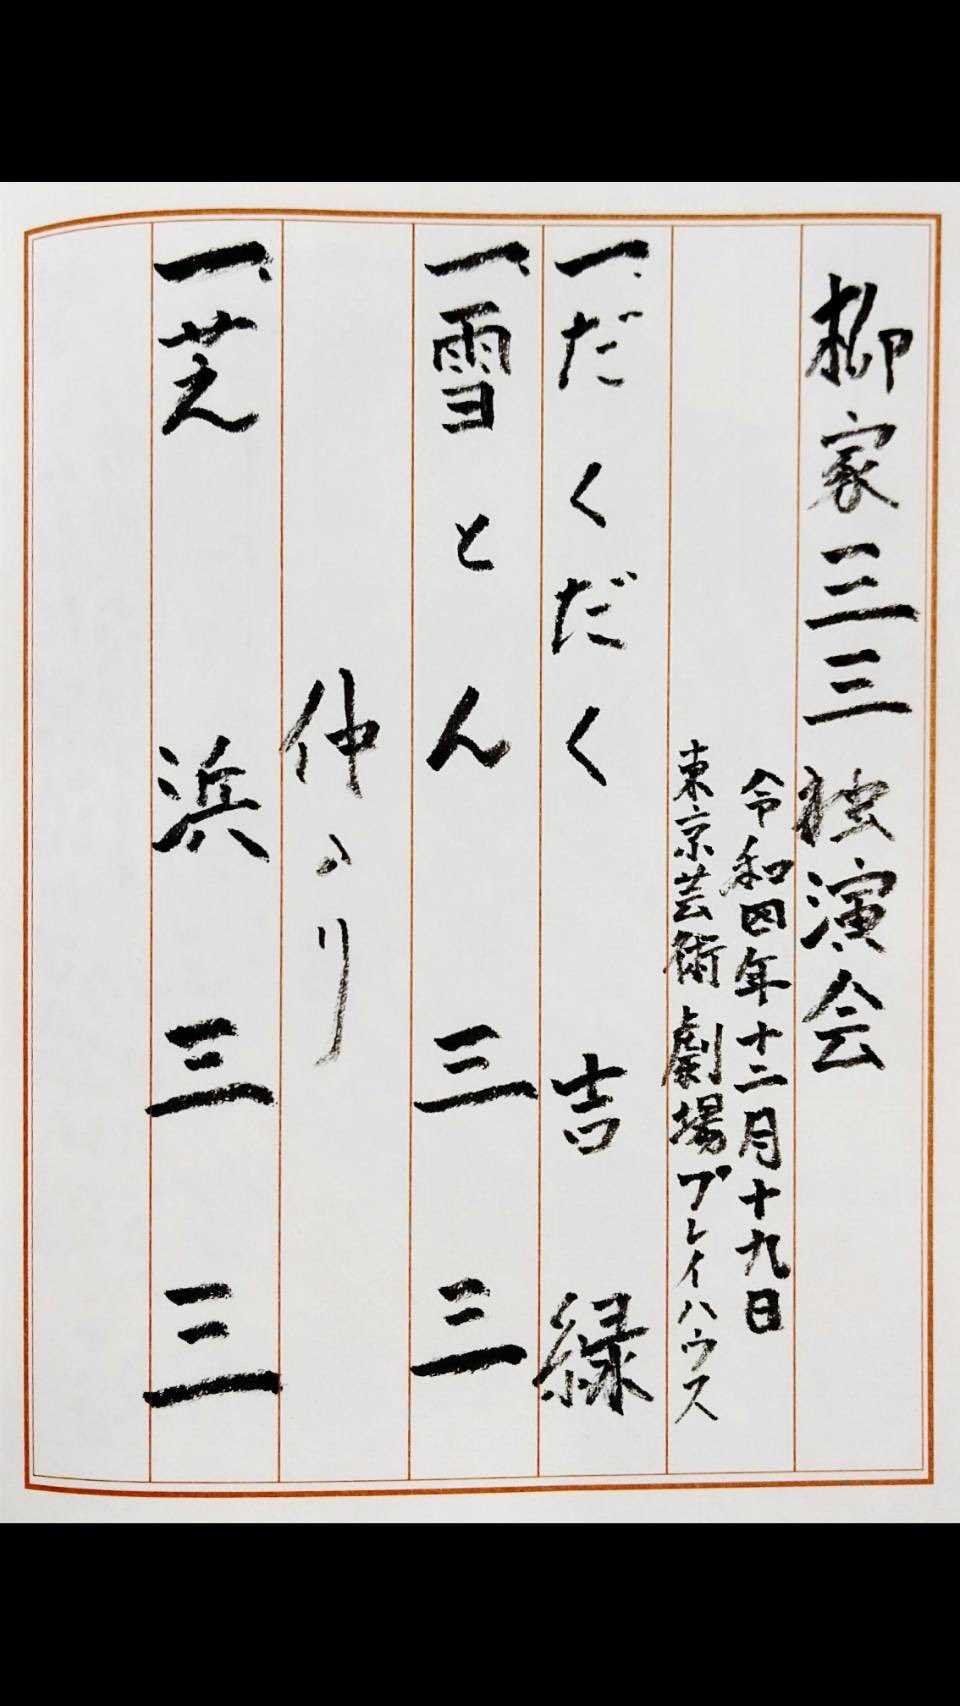 柳家三三独演会
令和四年十二月十九日
東京芸術劇場プレイハウス
一、だくだく 吉緑
一、雪とん 三三
仲入り
一、芝浜 三三